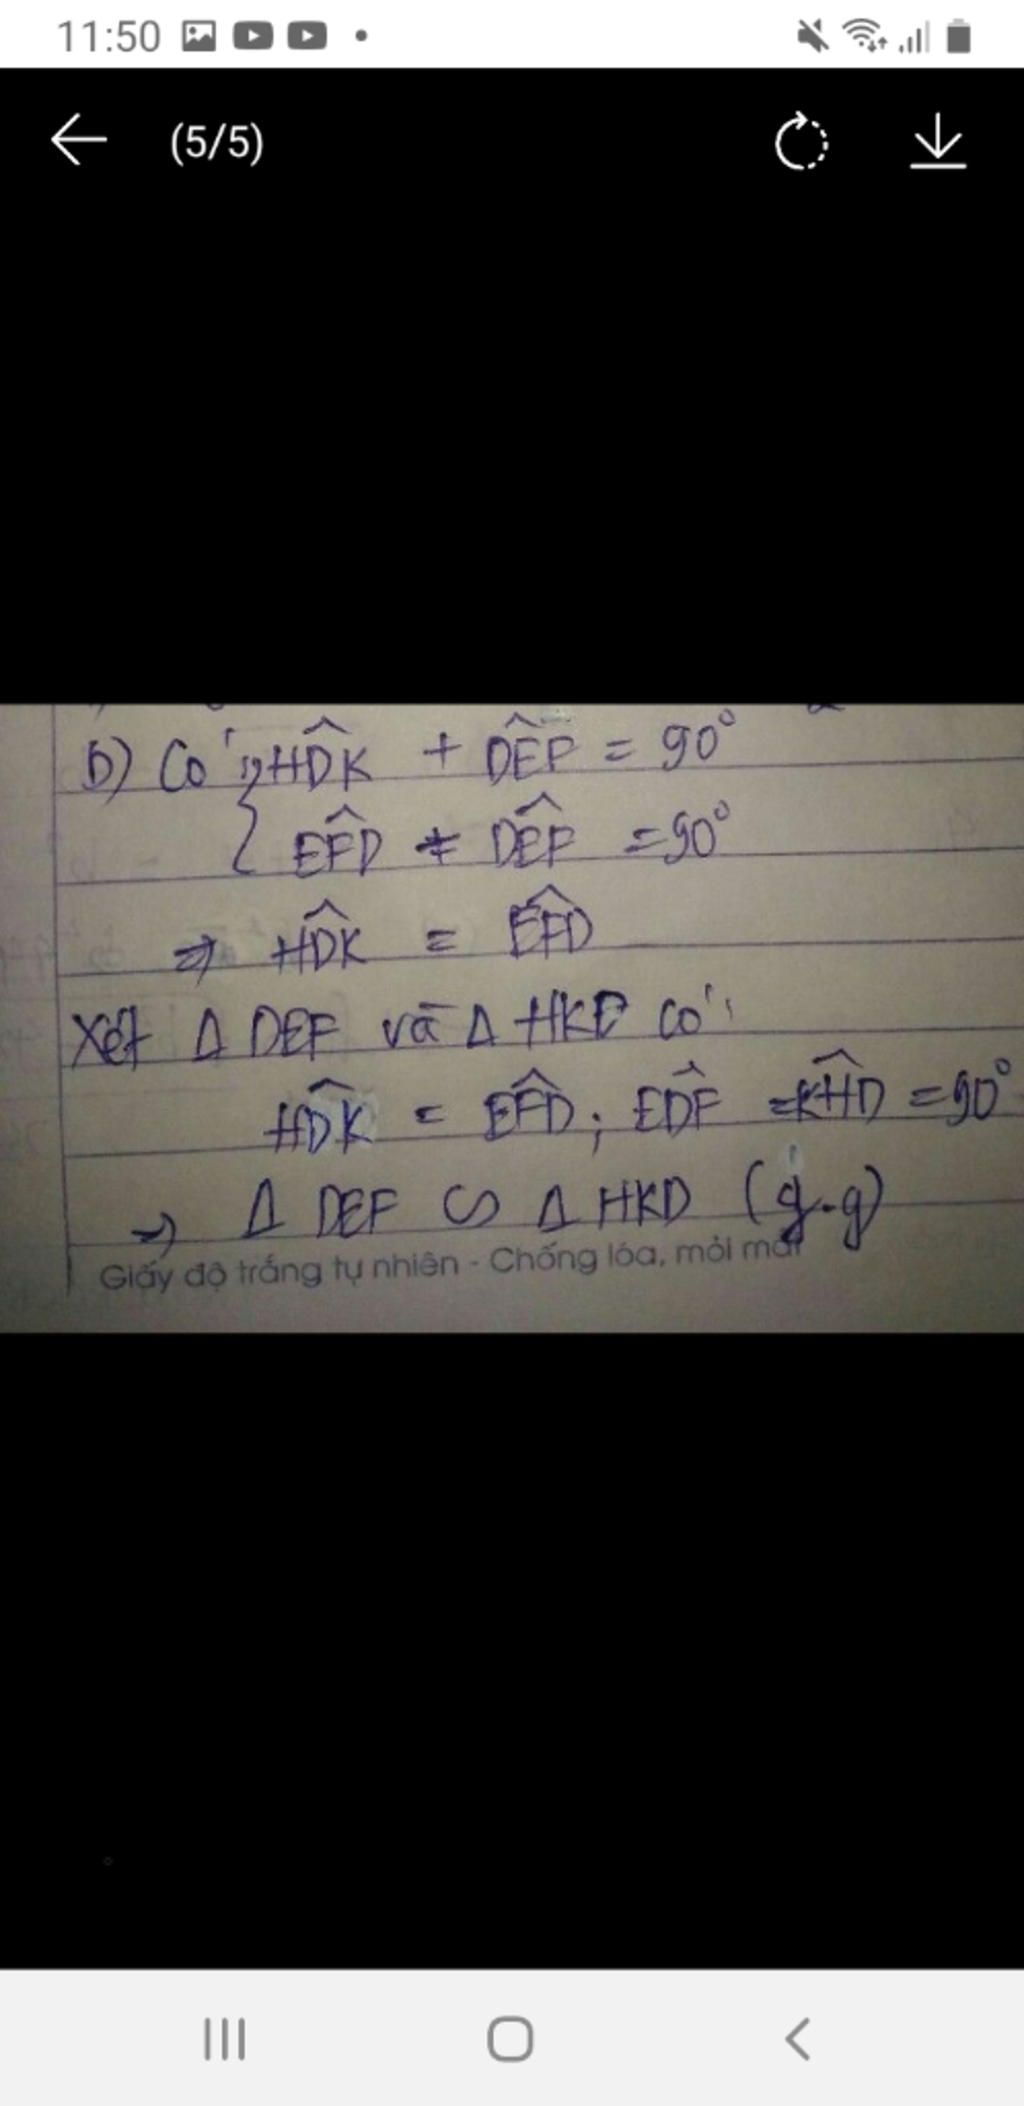 11:50
(5/5)
b) Có HDK + DEF = 90°
{ EFD + DEF = 90°
=> HDK = EFD
Xét Δ DEF và Δ HKD có
HDK = EFD ; EDF = KHD = 90°
=> Δ DEF ∽ Δ HKD (g.g)
Giấy độ trắng tự nhiên - Chống lóa, mỏi mắt